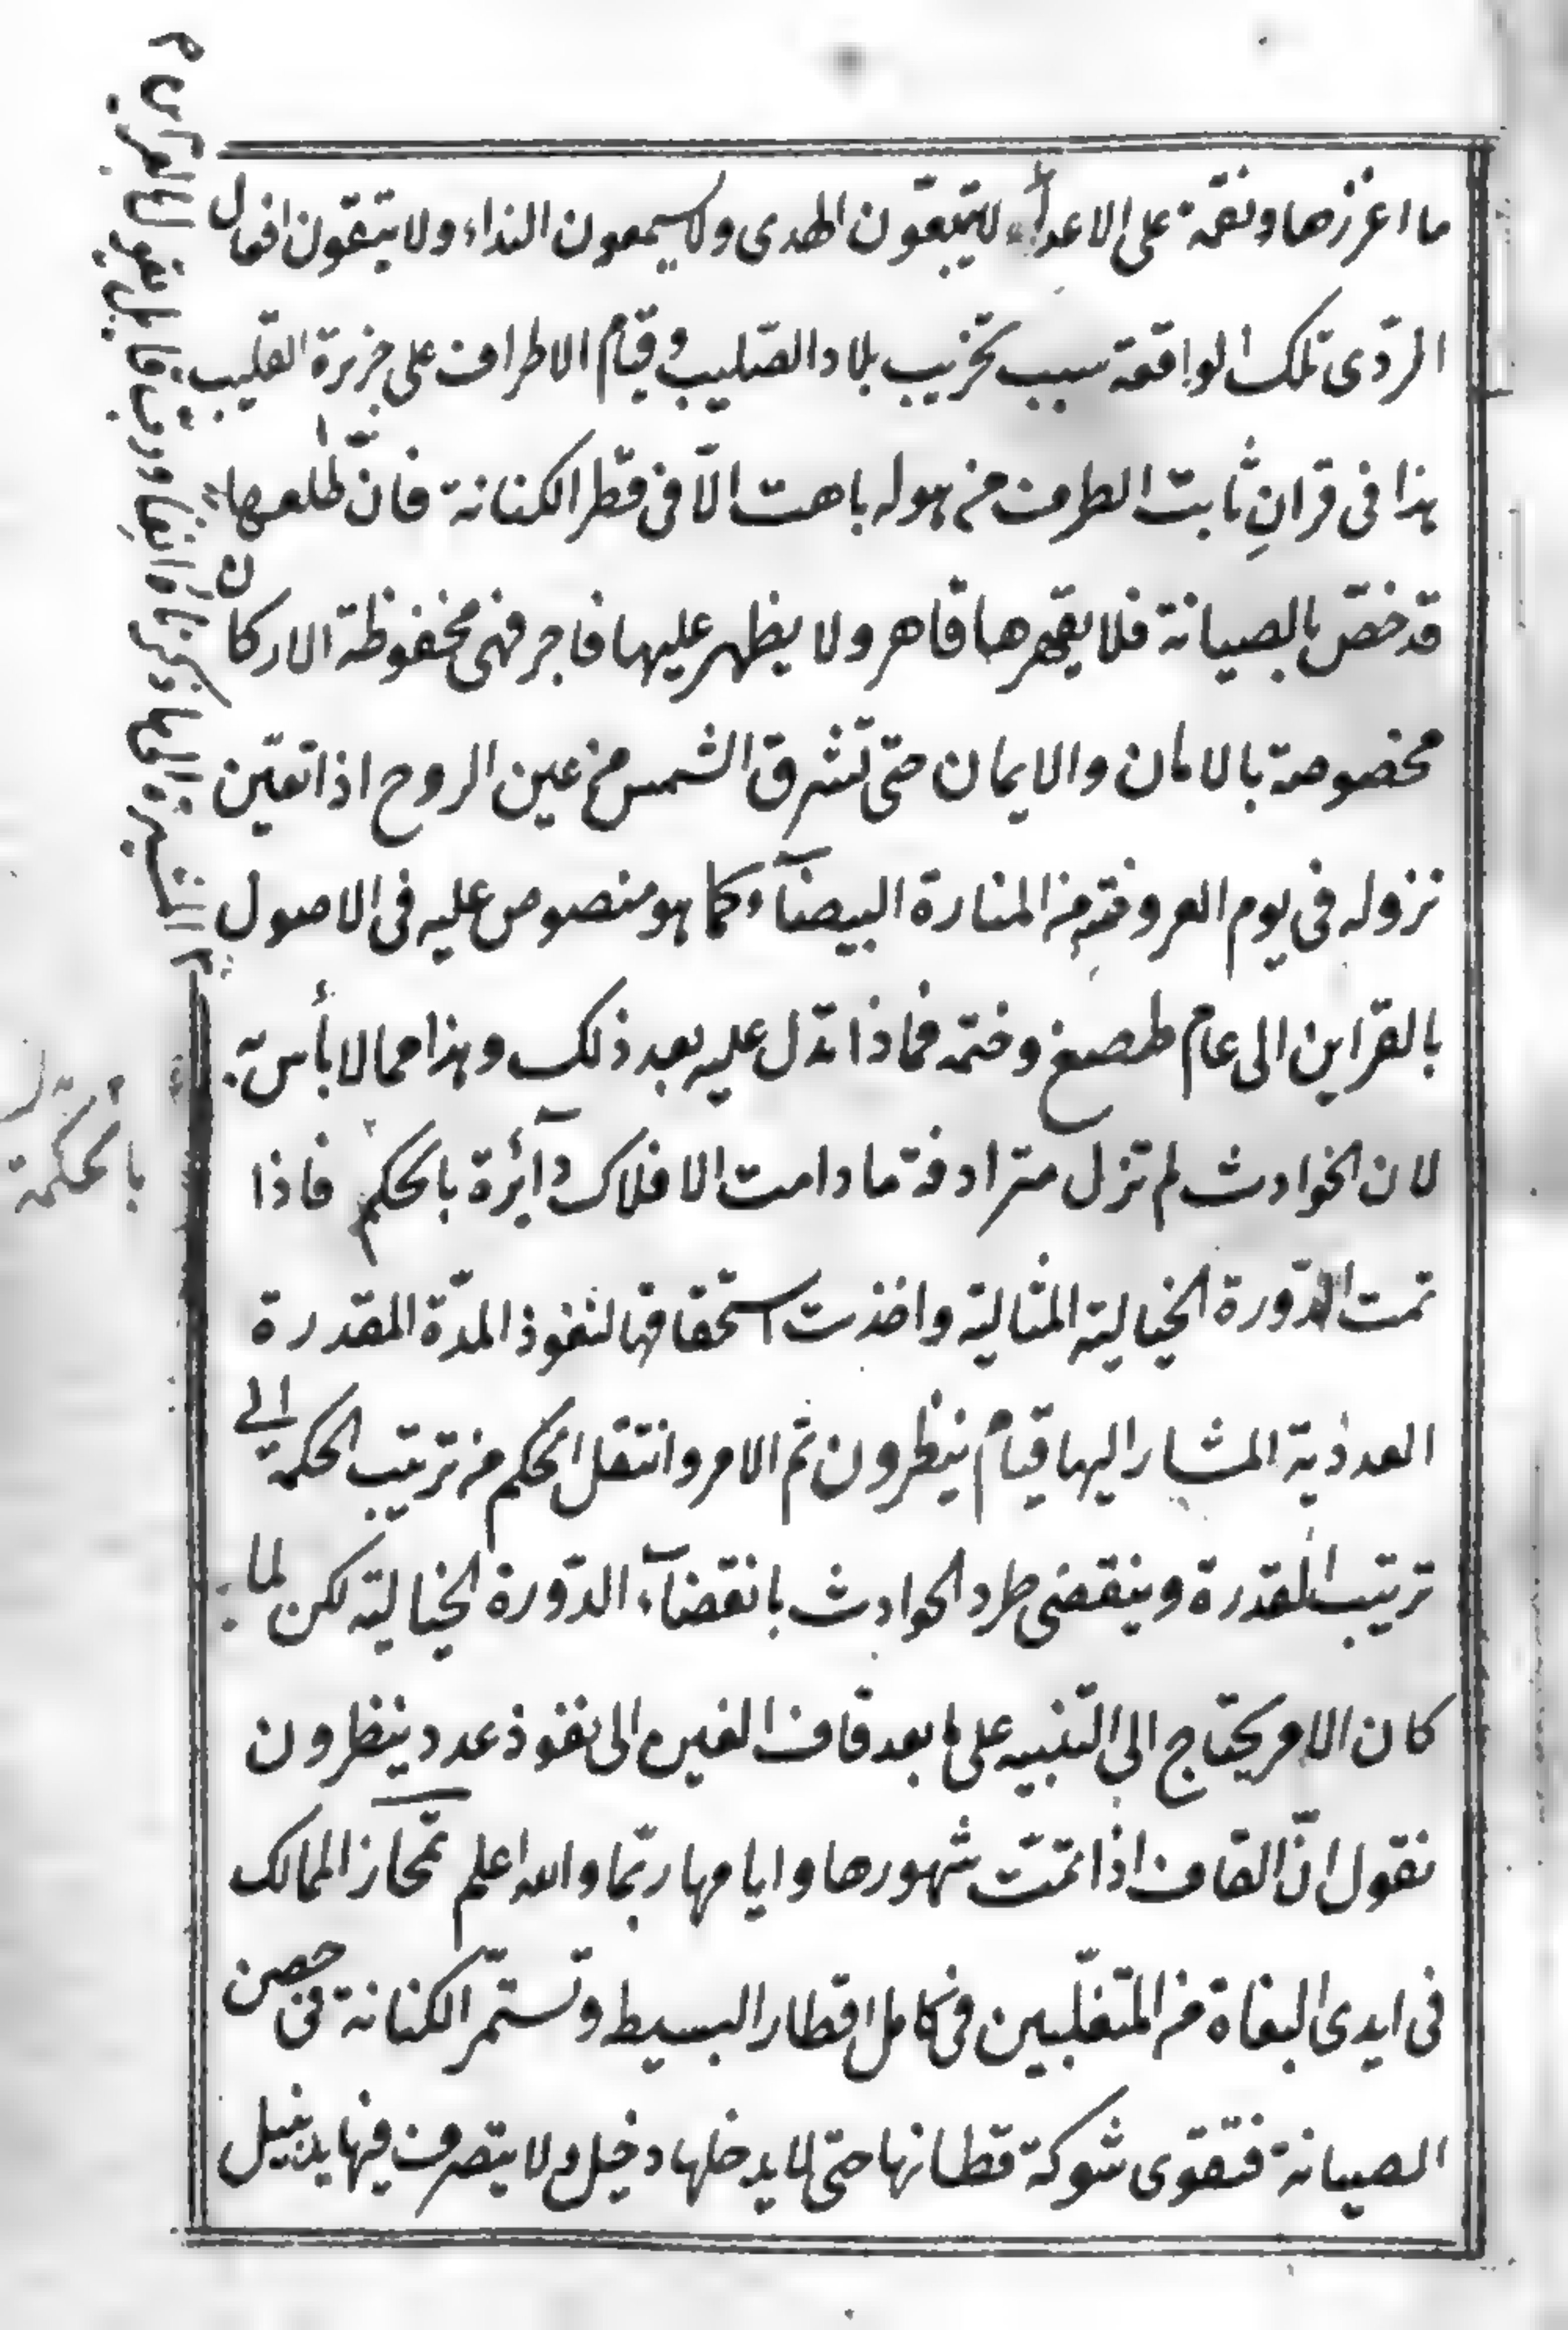 ما اغزرها ونقمة على الاعدآء لا يتبعون الهدى ولا يسمعون النداء ولا يتقون افعال
الردّى تلك الواقعة سبب تخريب بلاد الصّليب وقيام الاطراف على جزيرة القليب
هذا فى قرانِ ثابت الطرف من هوله باهت الّا فى قطر الكنانة فانّ طلعها
قد خصّ بالصيانة فلا يقهرها قاهر ولا يظهر عليها فاجر فهى محفوظة الاركان
مخصوصة بالامان والايمان حتى تشرق الشمس من عين الروح اذا تعيّن
نزوله فى يوم العروفته من المنارة البيضآء كما هو منصوص عليه فى الاصول
بالقراين الى عام طصغ وختمه فماذا تدل عليه بعد ذلك وهذا مما لا بأس به
لان الحوادث لم تزل مترادفة ما دامت الافلاك دآئرة بالحكم فاذا
تمت الدّورة الخيالية المثالية واخذت استحقاقها لنفوذ المدّة المقدرة
العددية المشار اليها قيام ينظرون تم الامر وانتقل الحكم من ترتيب الحكمة الى
ترتيب القدرة وينقضى طرد الحوادث بانقضآء الدّورة الخيالية لكن لما
كان الامر يحتاج الى التنبيه على ما بعد قاف الغين الى نفوذ عدد ينظرون
نقول انّ القاف اذا تمّت شهورها وايامها ربّما والله اعلم تمحاز الممالك
فى ايدى البغاة من المتغلّبين فى كامل اقطار البسيط وتستمّر الكنانة فى حصن
الصيانة فتقوى شوكة قطانها حتى لا يدخلها دخيل ولا يتصرف فيها يد نبيل
بالحكمة